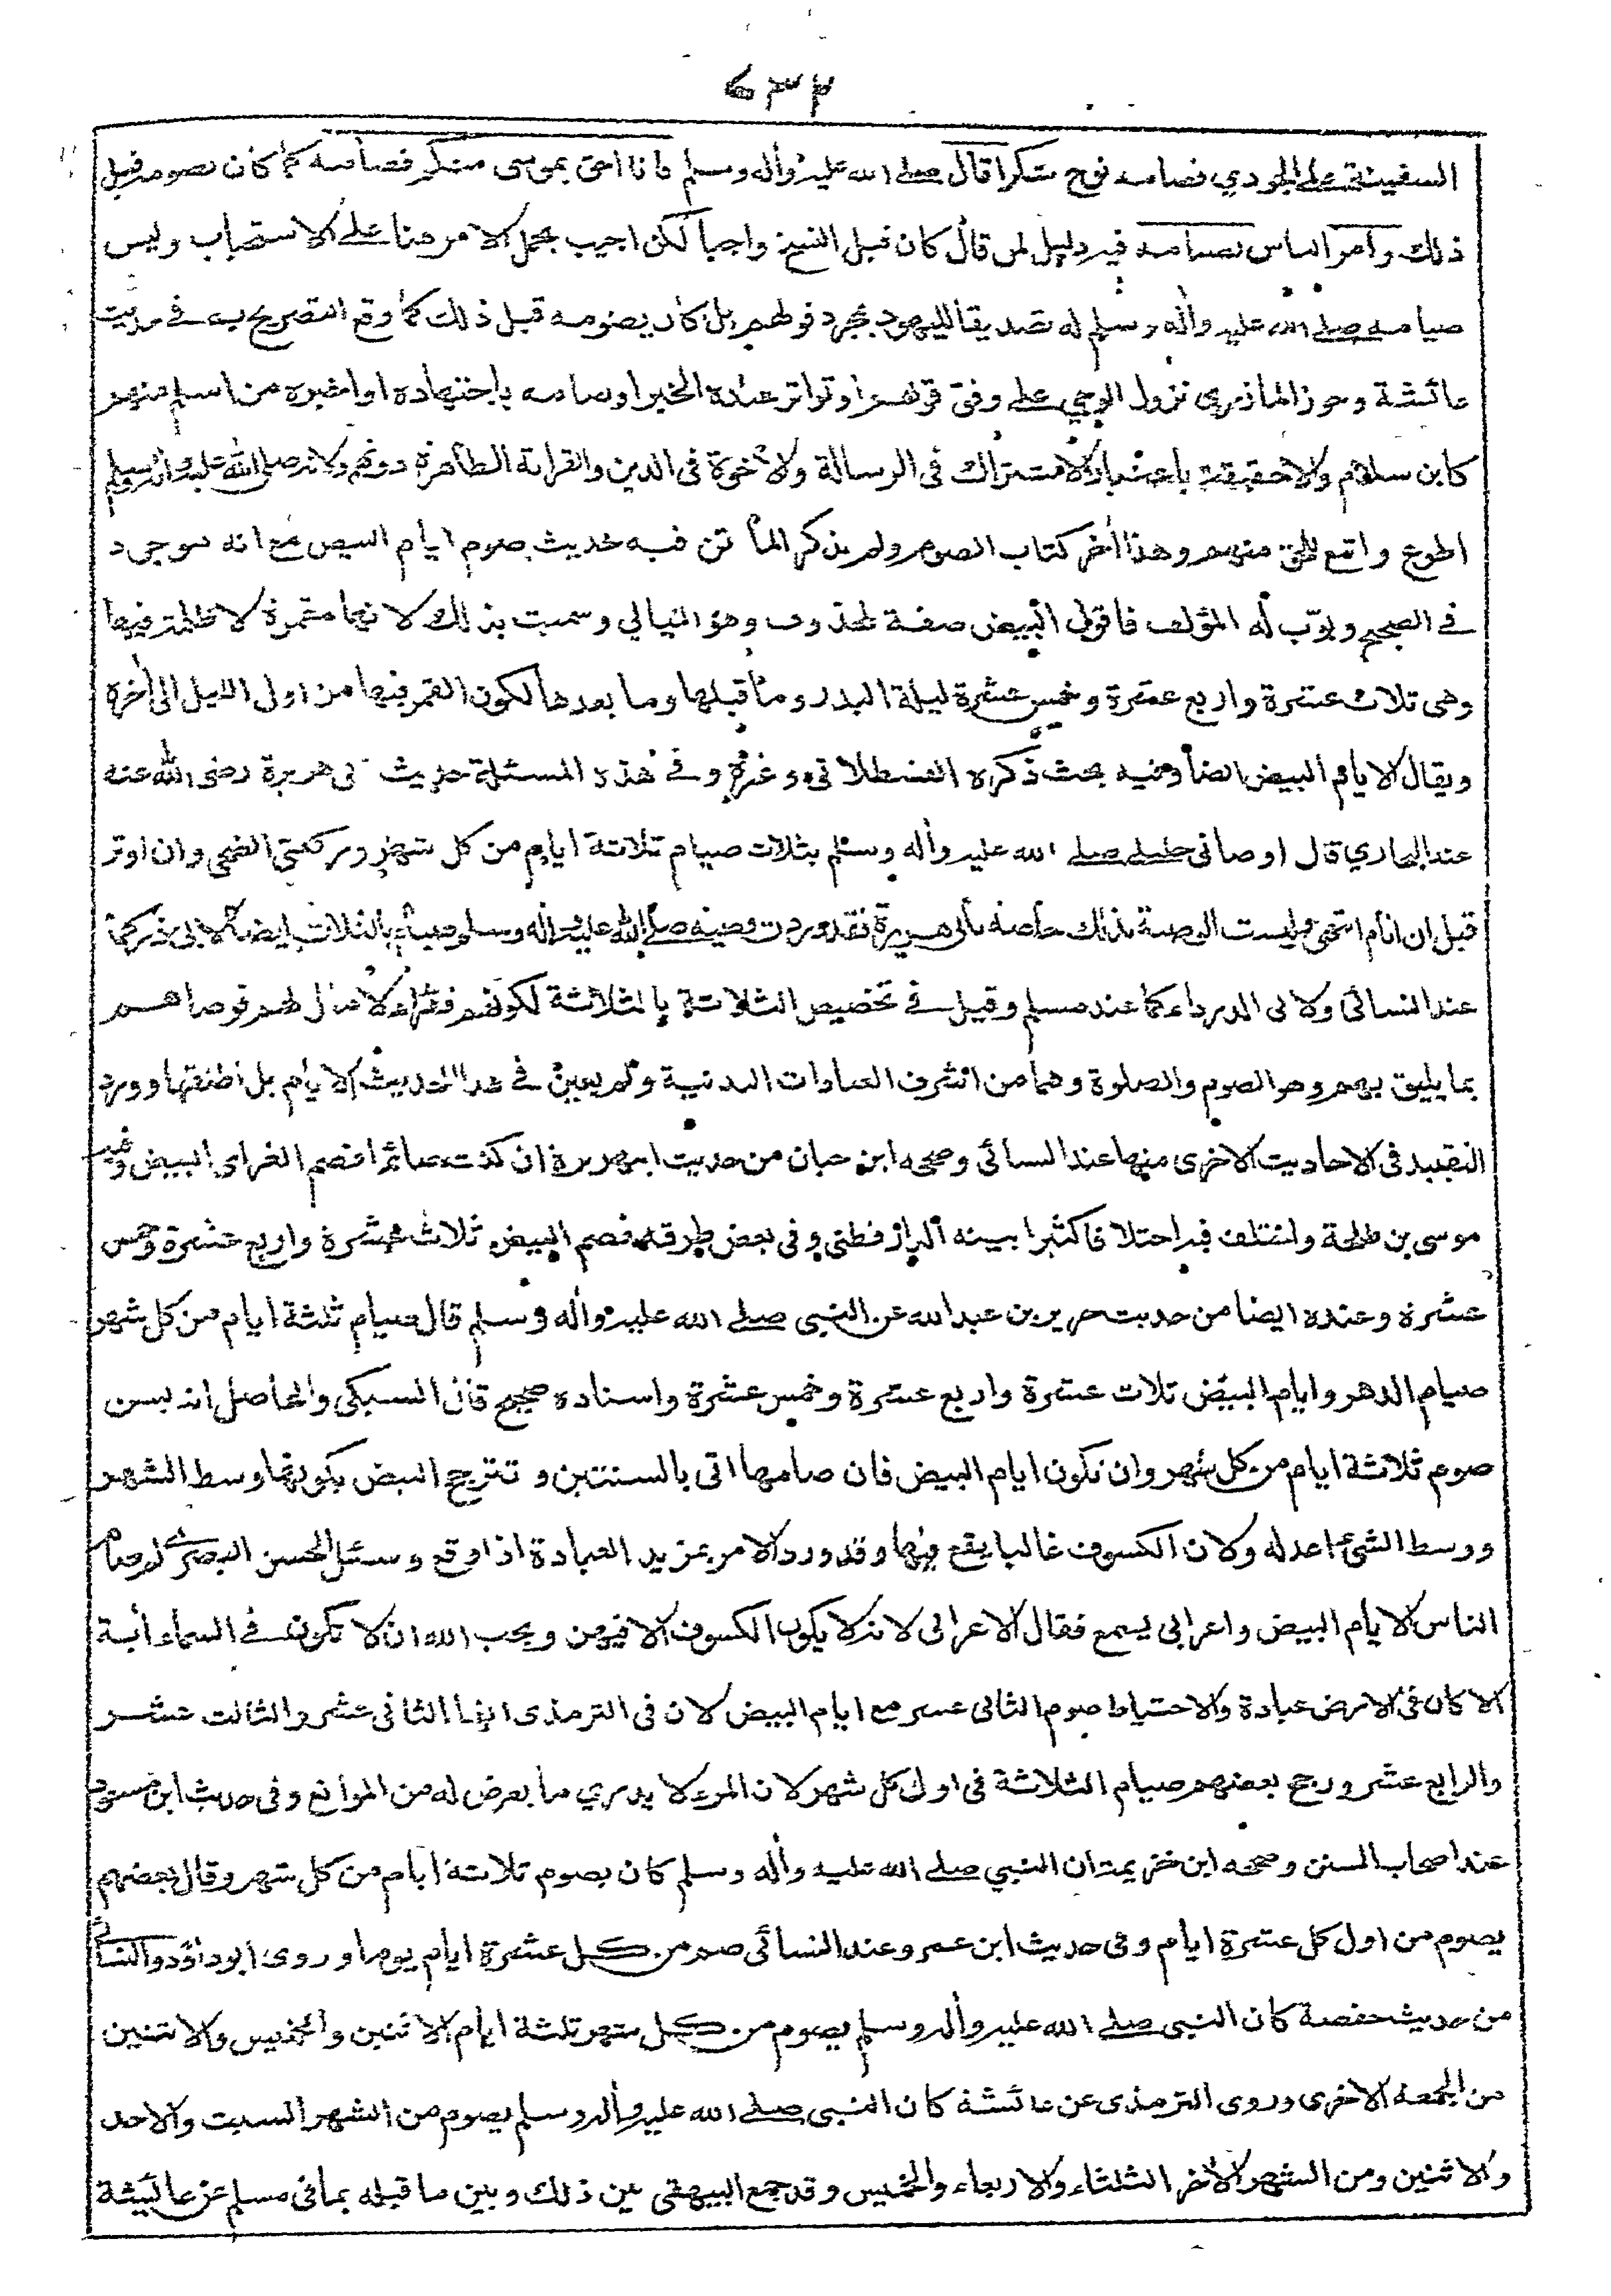 ٦٣٢
السفينة على الجودي فصامه نوح شكرا قال صلے الله عليه وأله وسلم فانا احق بموسى منكم فصامه كما كان يصومه قبل
ذلك وأمر الناس بصيامه فيه دليل لمن قال كان قبل النسخ واجبا لكن اجيب بحمل الامر هنا على الاستحباب وليس
صيامه صلے الله عليه وأله وسلم له تصديقا لليهود بمجرد قولهم بل كان يصومه قبل ذلك كما وقع التصريح به في حديث
عائشة وجوز المازري نزول الوحي على وفق قولهم او تواتر عنده الخبر او صامه باجتهاده او اخبره من اسلم منهم
كابن سلام والاحقية باعتبار الاشتراك في الرسالة والاخوة في الدين والقرابة الظاهرة دونهم ولانه صلى الله عليه وأله وسلم
اطوع واتبع للحق منهم وهذا أخر كتاب الصوم ولم يذكر الماتن فيه حديث صوم ايام البيض مع انه موجود
في الصحيح وبوّب له المؤلف فاقول البيض صفة لمحذوف وهو الليالي وسميت بذلك لانها مقمرة لا ظلمة فيها
وهي ثلاث عشرة واربع عشرة وخمس عشرة ليلة البدر وما قبلها وما بعدها لكون القمر فيها من اول الليل الى أخره
ويقال الايام البيض ايضا وفيه بحث ذكره القسطلاني وغيره وفي هذه المسئلة حديث ابي هريرة رضى الله عنه
عند البخاري قال اوصاني خليلي صلے الله عليه وأله وسلم بثلاث صيام ثلاثة ايام من كل شهر وركعتي الضحى وان اوتر
قبل ان انام انتهى وليست الوصية بذلك خاصة بابي هريرة فقد وردت وصيته صلے الله عليه وأله وسلم بالثلاث ايضا لابي ذر كما
عند النسائي ولابي الدرداء كما عند مسلم وقيل في تخصيص الثلاثة بالثلاثة لكونهم فقراء لا مال لهم فوصاهم
بما يليق بهم وهو الصوم والصلوة وهما من اشرف العبادات البدنية ولم يعين في هذا الحديث الايام بل اطلقها وورد
التقييد في الاحاديث الاخرى منها عند النسائي وصححه ابن حبان من حديث ابي هريرة ان كنت صائما فصم الغر اى البيض وفيه
موسى بن طلحة واختلف فيه اختلافا كثيرا بينه الدارقطني وفي بعض طرقه فصم البيض ثلاث عشرة واربع عشرة وخمس
عشرة وعنده ايضا من حديث جرير بن عبد الله عن النبي صلے الله عليه وأله وسلم قال صيام ثلثة ايام من كل شهر
صيام الدهر وايام البيض ثلاث عشرة واربع عشرة وخمس عشرة واسناده صحيح قال السبكي والحاصل انه يسن
صوم ثلاثة ايام من كل شهر وان تكون ايام البيض فان صامها اتى بالسنتين و تترجح البيض بكونها وسط الشهر
ووسط الشئ اعدله ولان الكسوف غالبا يقع فيها وقد ورد الامر بمزيد العبادة اذا وقع وسئل الحسن البصري لم صام
الناس الايام البيض واعرابي يسمع فقال الاعرابي لانه لا يكون الكسوف الا فيهن ويحب الله ان لا تكون في السماء أية
الا كان في الارض عبادة والاحتياط صوم الثاني عشر مع ايام البيض لان في الترمذي انها الثاني عشر والثالث عشر
والرابع عشر ورجح بعضهم صيام الثلاثة في اول كل شهر لان المرء لا يدري ما يعرض له من الموانع وفي حديث ابن مسعود
عند اصحاب السنن وصححه ابن خزيمة ان النبي صلے الله عليه وأله وسلم كان يصوم ثلاثة ايام من كل شهر وقال بعضهم
يصوم من اول كل عشرة ايام وفي حديث ابن عمرو عند النسائي صم من كل عشرة ايام يوما وروى ابو داؤد والنسائي
من حديث حفصة كان النبي صلے الله عليه وأله وسلم يصوم من كل شهر ثلثة ايام الاثنين والخميس والاثنين
من الجمعة الاخرى وروى الترمذى عن عائشة كان النبي صلے الله عليه وأله وسلم يصوم من الشهر السبت والاحد
والاثنين ومن الشهر الأخر الثلثاء والاربعاء والخميس وقد جمع البيهقي بين ذلك وبين ما قبله بما في مسلم عن عائشة